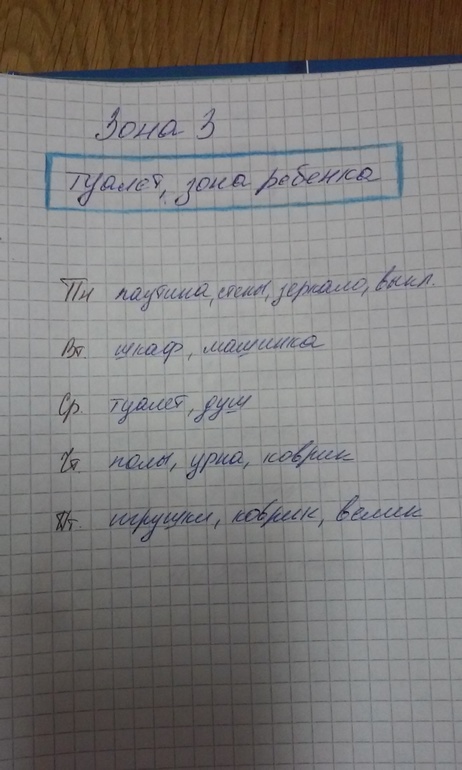 Зона 3
туалет, зона ребенка
Пн паутина, стены, зеркало, выкл.
Вт. шкаф, машинка
Ср. туалет, душ
Чт. полы, урна, коврик
Пт. игрушки, коврик, велик